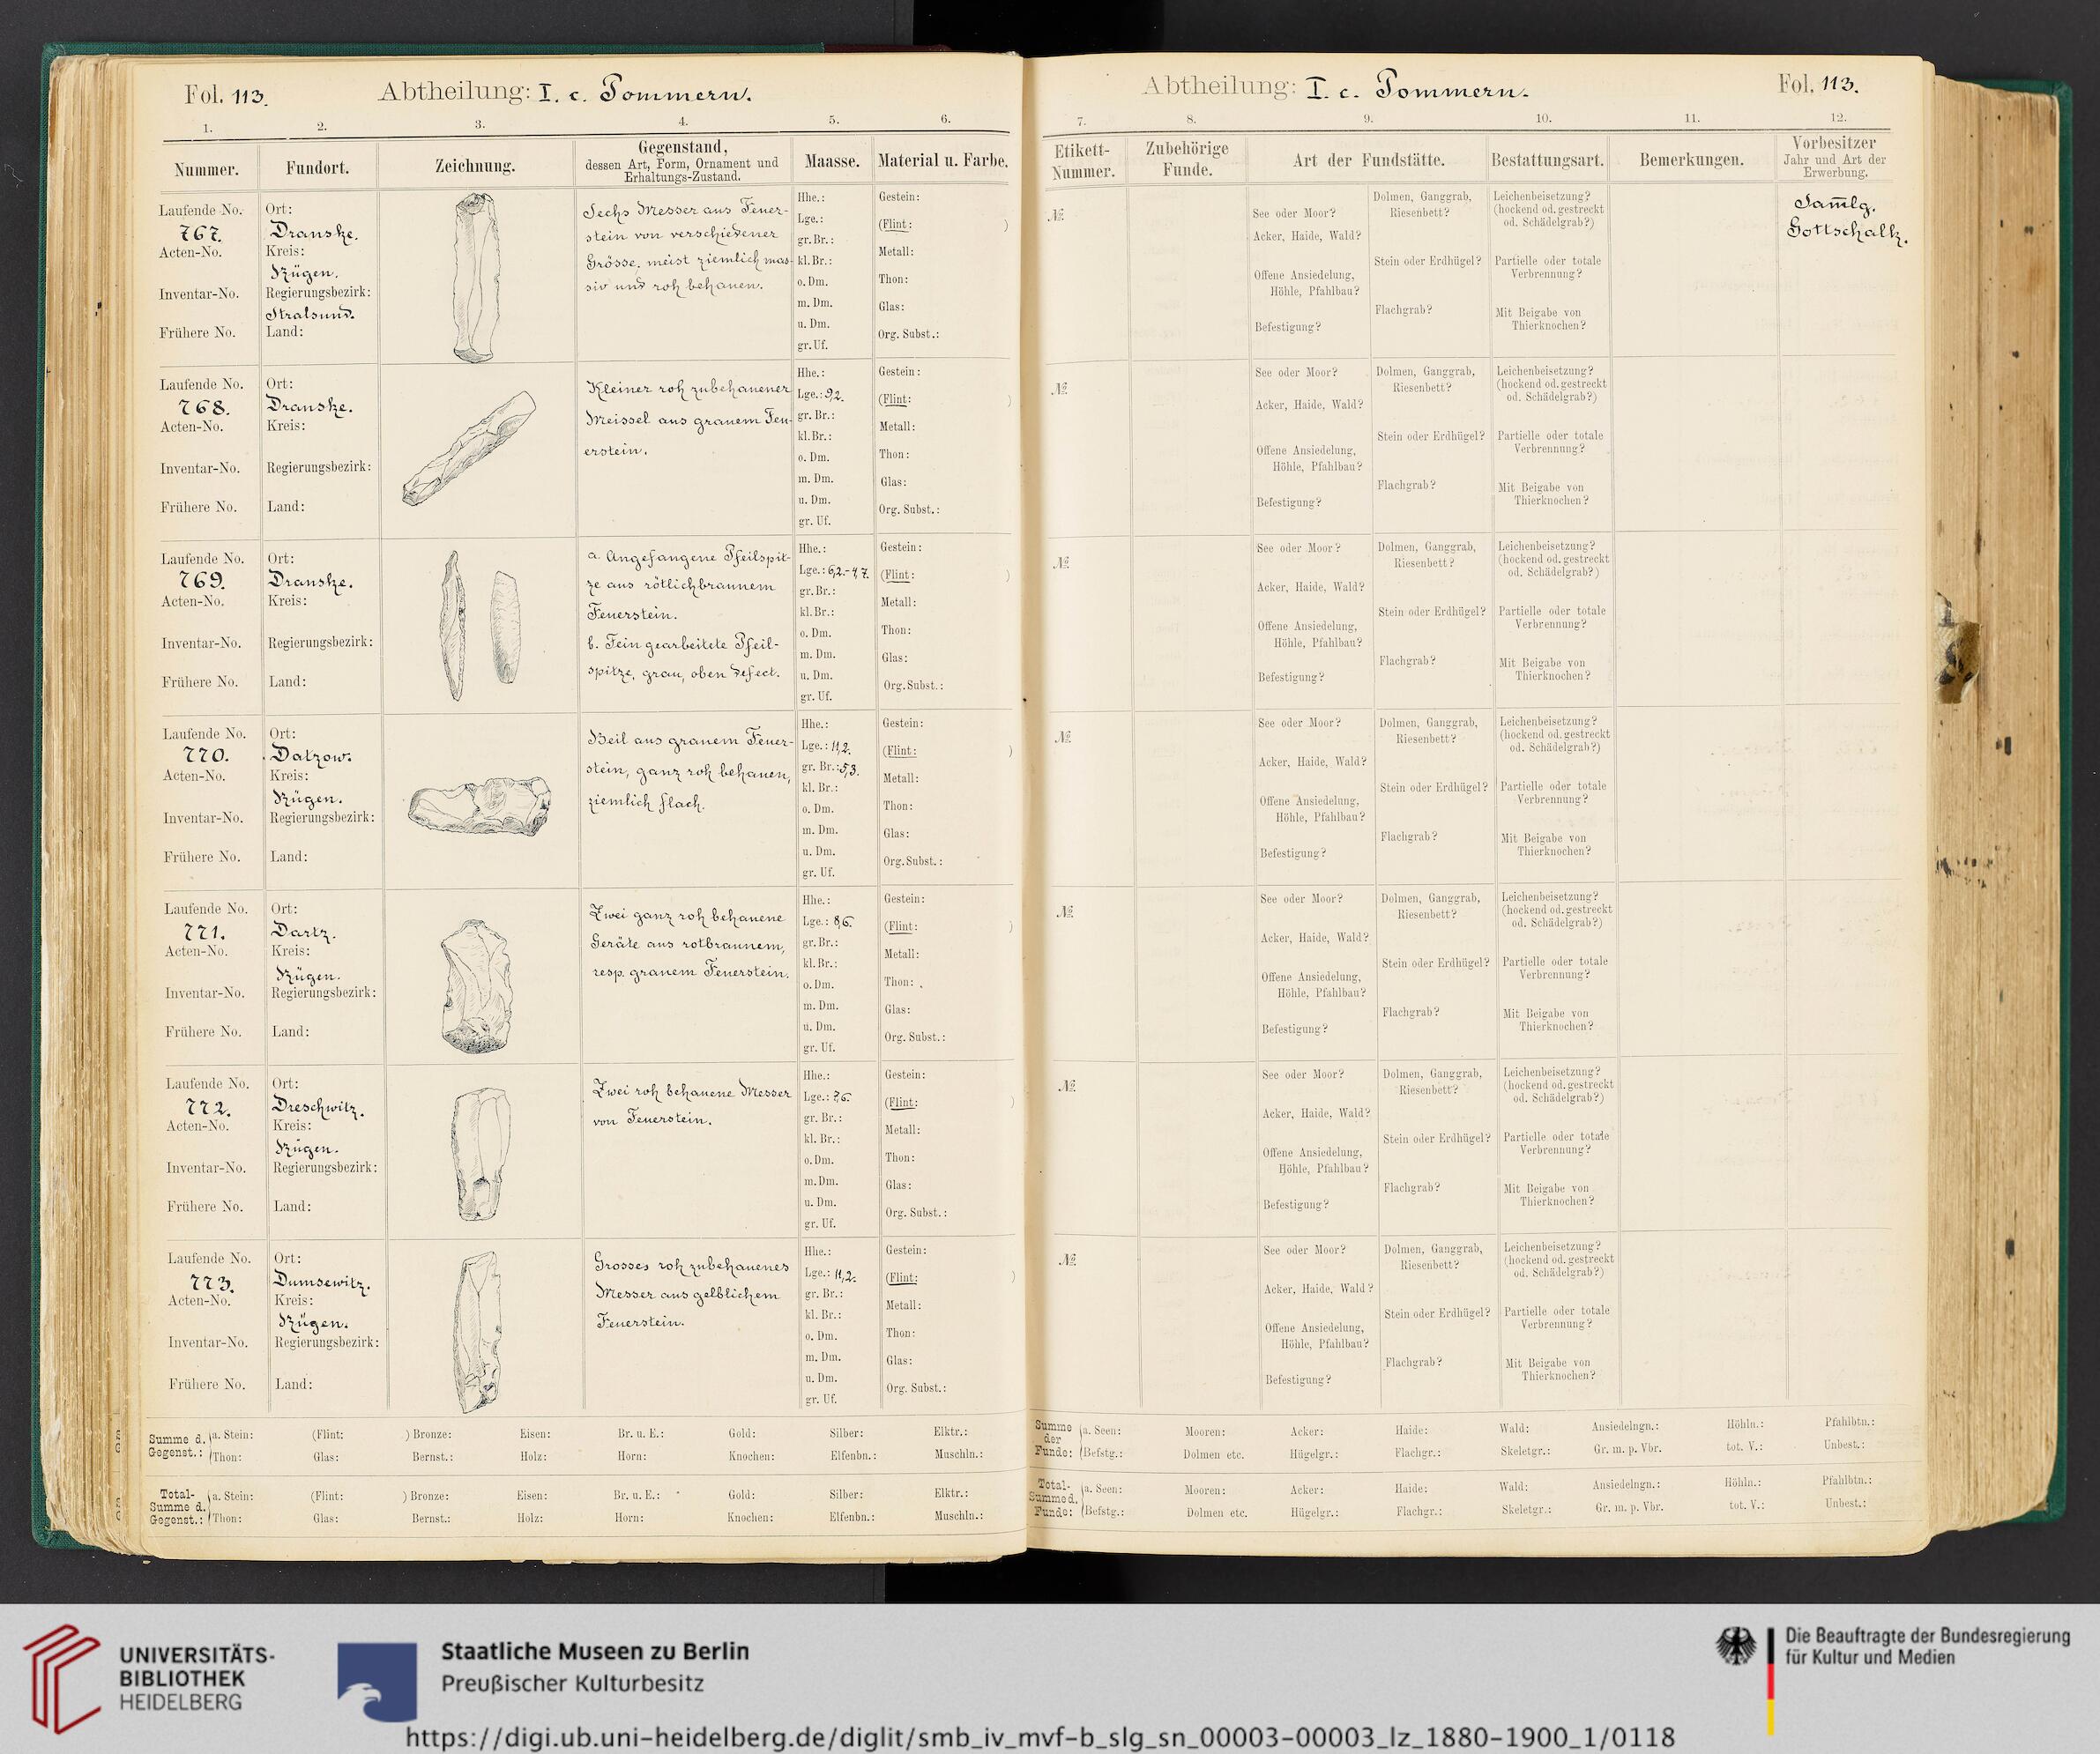 Fol. 113.
Abtheilung: I. c. Pommern.
1. 2. 3. 4. 5. 6.
Nummer.
Fundort.
Zeichnung.
Gegenstand,
dessen Art, Form, Ornament und
Erhaltungs-Zustand.
Maasse.
Material u. Farbe.
Laufende No.
767.
Acten-No.
Inventar-No.
Frühere No.
Ort:
Dranske.
Kreis:
Rügen.
Regierungsbezirk:
Stralsund.
Land:
Sechs Messer aus Feuer-
stein von verschiedener
Grösse, meist ziemlich mas-
siv und roh behauen.
Hhe.:
Lge.:
gr. Br.:
kl. Br.:
o. Dm.
m. Dm.
u. Dm.
gr. Uf.
Gestein:
(Flint: )
Metall:
Thon:
Glas:
Org. Subst.:
Laufende No.
768.
Acten-No.
Inventar-No.
Frühere No.
Ort:
Dranske.
Kreis:
Regierungsbezirk:
Land:
Kleiner roh zubehauener
Meissel aus grauem Feu-
erstein.
Hhe.:
Lge.: 9,2.
gr. Br.:
kl. Br.:
o. Dm.
m. Dm.
u. Dm.
gr. Uf.
Gestein:
(Flint: )
Metall:
Thon:
Glas:
Org. Subst.:
Laufende No.
769.
Acten-No.
Inventar-No.
Frühere No.
Ort:
Dranske.
Kreis:
Regierungsbezirk:
Land:
a. Angefangene Pfeilspit-
ze aus rötlichbraunem
Feuerstein.
b. Fein gearbeitete Pfeil-
spitze, grau, oben defect.
Hhe.:
Lge.: 6,2.-4,7.
gr. Br.:
kl. Br.:
o. Dm.
m. Dm.
u. Dm.
gr. Uf.
Gestein:
(Flint: )
Metall:
Thon:
Glas:
Org. Subst.:
Laufende No.
770.
Acten-No.
Inventar-No.
Frühere No.
Ort:
Datzow.
Kreis:
Rügen.
Regierungsbezirk:
Land:
Beil aus grauem Feuer-
stein, ganz roh behauen,
ziemlich flach.
Hhe.:
Lge.: 11,2.
gr. Br.: 5,3.
kl. Br.:
o. Dm.
m. Dm.
u. Dm.
gr. Uf.
Gestein:
(Flint: )
Metall:
Thon:
Glas:
Org. Subst.:
Laufende No.
771.
Acten-No.
Inventar-No.
Frühere No.
Ort:
Dartz.
Kreis:
Rügen.
Regierungsbezirk:
Land:
Zwei ganz roh behauene
Geräte aus rotbraunem,
resp. grauem Feuerstein.
Hhe.:
Lge.: 8,6.
gr. Br.:
kl. Br.:
o. Dm.
m. Dm.
u. Dm.
gr. Uf.
Gestein:
(Flint: )
Metall:
Thon:
Glas:
Org. Subst.:
Laufende No.
772.
Acten-No.
Inventar-No.
Frühere No.
Ort:
Dreschwitz.
Kreis:
Rügen.
Regierungsbezirk:
Land:
Zwei roh behauene Messer
von Feuerstein.
Hhe.:
Lge.:
gr. Br.:
kl. Br.:
o. Dm.
m. Dm.
u. Dm.
gr. Uf.
Gestein:
(Flint: )
Metall:
Thon:
Glas:
Org. Subst.:
Laufende No.
773.
Acten-No.
Inventar-No.
Frühere No.
Ort:
Dumsewitz.
Kreis:
Rügen.
Regierungsbezirk:
Land:
Grosses roh zubehauenes
Messer aus gelblichem
Feuerstein.
Hhe.:
Lge.: 11,2.
gr. Br.:
kl. Br.:
o. Dm.
m. Dm.
u. Dm.
gr. Uf.
Gestein:
(Flint: )
Metall:
Thon:
Glas:
Org. Subst.:
Summe d. Gegenst.:
a. Stein: (Flint: ) Bronze: Eisen: Br. u. E.: Gold: Silber: Elktr.:
Thon: Glas: Bernst.: Holz: Horn: Knochen: Elfenbn.: Muschln.:
Total-Summe d. Gegenst.:
a. Stein: (Flint: ) Bronze: Eisen: Br. u. E.: Gold: Silber: Elktr.:
Thon: Glas: Bernst.: Holz: Horn: Knochen: Elfenbn.: Muschln.:
Abtheilung: I. c. Pommern.
Fol. 113.
7. 8. 9. 10. 11. 12.
Etikett-
Nummer.
Zubehörige
Funde.
Art der Fundstätte.
Bestattungsart.
Bemerkungen.
Vorbesitzer
Jahr und Art der
Erwerbung.
№
See oder Moor?
Acker, Haide, Wald?
Offene Ansiedelung,
Höhle, Pfahlbau?
Befestigung?
Dolmen, Ganggrab,
Riesenbett?
Stein oder Erdhügel?
Flachgrab?
Leichenbeisetzung?
(hockend od. gestreckt
od. Schädelgrab?)
Partielle oder totale
Verbrennung?
Mit Beigabe von
Thierknochen?
Samlg.
Gottschalk.
№
See oder Moor?
Acker, Haide, Wald?
Offene Ansiedelung,
Höhle, Pfahlbau?
Befestigung?
Dolmen, Ganggrab,
Riesenbett?
Stein oder Erdhügel?
Flachgrab?
Leichenbeisetzung?
(hockend od. gestreckt
od. Schädelgrab?)
Partielle oder totale
Verbrennung?
Mit Beigabe von
Thierknochen?
№
See oder Moor?
Acker, Haide, Wald?
Offene Ansiedelung,
Höhle, Pfahlbau?
Befestigung?
Dolmen, Ganggrab,
Riesenbett?
Stein oder Erdhügel?
Flachgrab?
Leichenbeisetzung?
(hockend od. gestreckt
od. Schädelgrab?)
Partielle oder totale
Verbrennung?
Mit Beigabe von
Thierknochen?
№
See oder Moor?
Acker, Haide, Wald?
Offene Ansiedelung,
Höhle, Pfahlbau?
Befestigung?
Dolmen, Ganggrab,
Riesenbett?
Stein oder Erdhügel?
Flachgrab?
Leichenbeisetzung?
(hockend od. gestreckt
od. Schädelgrab?)
Partielle oder totale
Verbrennung?
Mit Beigabe von
Thierknochen?
№
See oder Moor?
Acker, Haide, Wald?
Offene Ansiedelung,
Höhle, Pfahlbau?
Befestigung?
Dolmen, Ganggrab,
Riesenbett?
Stein oder Erdhügel?
Flachgrab?
Leichenbeisetzung?
(hockend od. gestreckt
od. Schädelgrab?)
Partielle oder totale
Verbrennung?
Mit Beigabe von
Thierknochen?
№
See oder Moor?
Acker, Haide, Wald?
Offene Ansiedelung,
Höhle, Pfahlbau?
Befestigung?
Dolmen, Ganggrab,
Riesenbett?
Stein oder Erdhügel?
Flachgrab?
Leichenbeisetzung?
(hockend od. gestreckt
od. Schädelgrab?)
Partielle oder totale
Verbrennung?
Mit Beigabe von
Thierknochen?
№
See oder Moor?
Acker, Haide, Wald?
Offene Ansiedelung,
Höhle, Pfahlbau?
Befestigung?
Dolmen, Ganggrab,
Riesenbett?
Stein oder Erdhügel?
Flachgrab?
Leichenbeisetzung?
(hockend od. gestreckt
od. Schädelgrab?)
Partielle oder totale
Verbrennung?
Mit Beigabe von
Thierknochen?
Summe der Funde:
a. Seen: Mooren: Acker: Haide: Wald: Ansiedelngn.: Höhln.: Pfahlbtn.:
Befstg.: Dolmen etc. Hügelgr.: Flachgr.: Skeletgr.: Gr. m. p. Vbr. tot. V.: Unbest.:
Total-Summe d. Funde:
a. Seen: Mooren: Acker: Haide: Wald: Ansiedelngn.: Höhln.: Pfahlbtn.:
Befstg.: Dolmen etc. Hügelgr.: Flachgr.: Skeletgr.: Gr. m. p. Vbr. tot. V.: Unbest.:
UNIVERSITÄTS-
BIBLIOTHEK
HEIDELBERG
Staatliche Museen zu Berlin
Preußischer Kulturbesitz
Die Beauftragte der Bundesregierung
für Kultur und Medien
https://digi.ub.uni-heidelberg.de/diglit/smb_iv_mvf-b_slg_sn_00003-00003_lz_1880-1900_1/0118